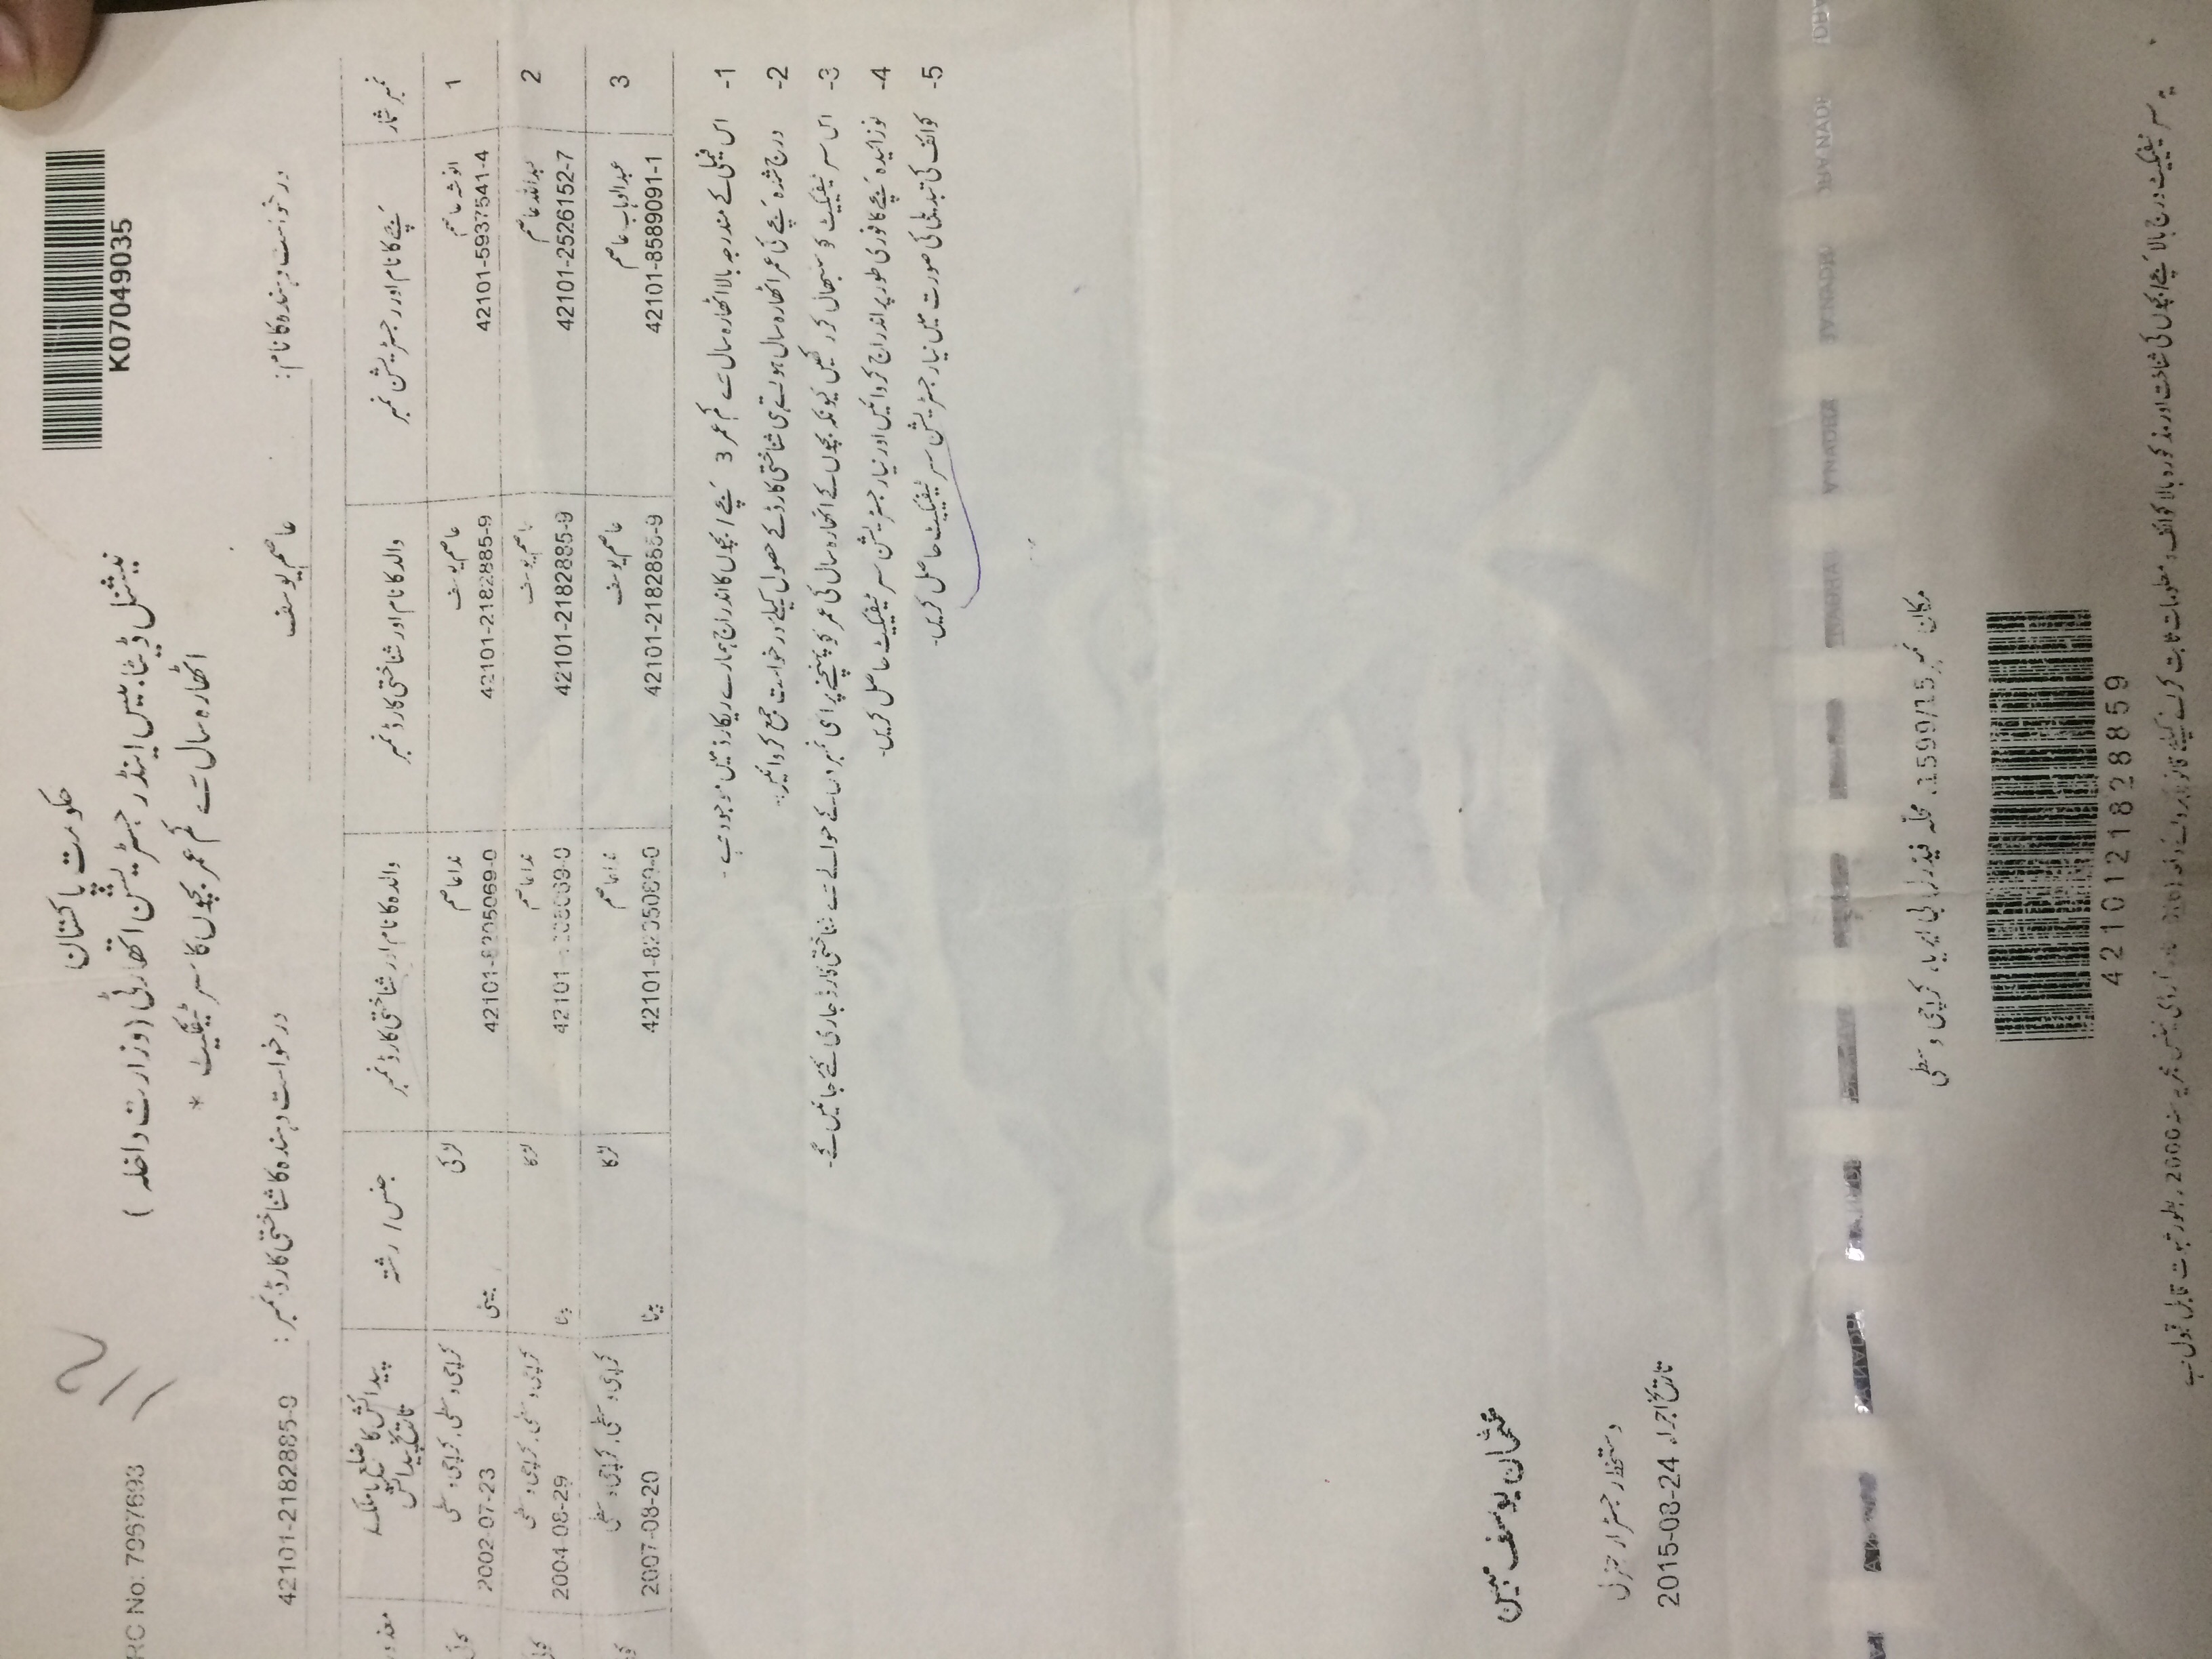 K07049035
حکومت پاکستان
نیشنل ڈیٹا بیس اینڈ رجسٹریشن اتھارٹی (وزارت داخلہ)
اٹھارہ سال سے کم عمر بچوں کا سرٹیفکیٹ *
RC No:
درخواست دہندہ کا نام: عاصم یوسف درخواست دہندہ کا شناختی کارڈ نمبر: 42101-2182885-9
نمبر شمار بچے کا نام اور رجسٹریشن نمبر والد کا نام اور شناختی کارڈ نمبر والدہ کا نام اور شناختی کارڈ نمبر جنس / رشتہ پیدائش کا ضلع تاریخ پیدائش
1 عاصم یوسف ندا عاصم لڑکی کراچی وسطی، کراچی وسطی
42101-5937541-4 42101-2182885-9 بیٹی 2002-07-23
2 عبداللہ عاصم عاصم یوسف ندا عاصم لڑکا کراچی وسطی، کراچی وسطی
42101-2526152-7 42101-2182885-9 42101- بیٹا 2004-08-29
3 عبدالوہاب عاصم عاصم یوسف ندا عاصم لڑکا کراچی وسطی، کراچی وسطی
42101-8589091-1 بیٹا 2007-08-20
1- اس فیملی کے مندرجہ بالا اٹھارہ سال سے کم عمر 3 بچے / بچوں کا اندراج ہمارے ریکارڈ میں موجود ہے۔
2- درج شدہ بچے کی عمر اٹھارہ سال ہوتے ہی شناختی کارڈ کے حصول کیلئے درخواست جمع کروائیں۔
3- اس سرٹیفکیٹ کو سنبھال کر رکھیں کیونکہ بچوں کے اٹھارہ سال کی عمر کو پہنچنے پر اسی نمبر کے حوالے سے شناختی کارڈ جاری کئے جائیں گے۔
4- نوزائیدہ بچے کا فوری طور پر اندراج کروائیں اور نیا رجسٹریشن سرٹیفکیٹ حاصل کریں۔
5- کوائف کی تبدیلی کی صورت میں نیا رجسٹریشن سرٹیفکیٹ حاصل کریں۔
عثمان یوسف مبین
دستخط رجسٹرار جنرل
تاریخ اجراء 2015-08-24
مکان نمبر 1599/15، محلہ فیڈرل بی ایریا، کراچی وسطی
4210121828859
یہ سرٹیفکیٹ درج بالا بچے / بچوں کی شناخت اور مذکورہ بالا کوائف و معلومات ثابت کرنے کیلئے 2000ء بطور ثبوت قابل قبول ہے